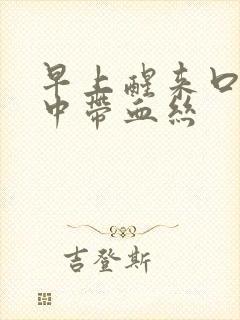 早上醒来口
中带血丝
吉登斯